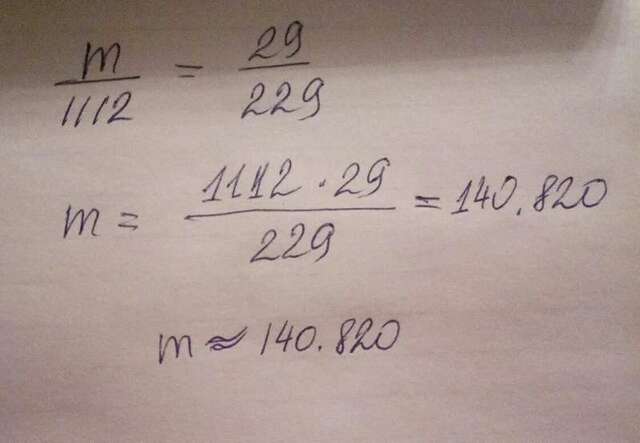 m/1112 = 29/229
m = 1112 · 29/229 = 140.820
m ≈ 140.820